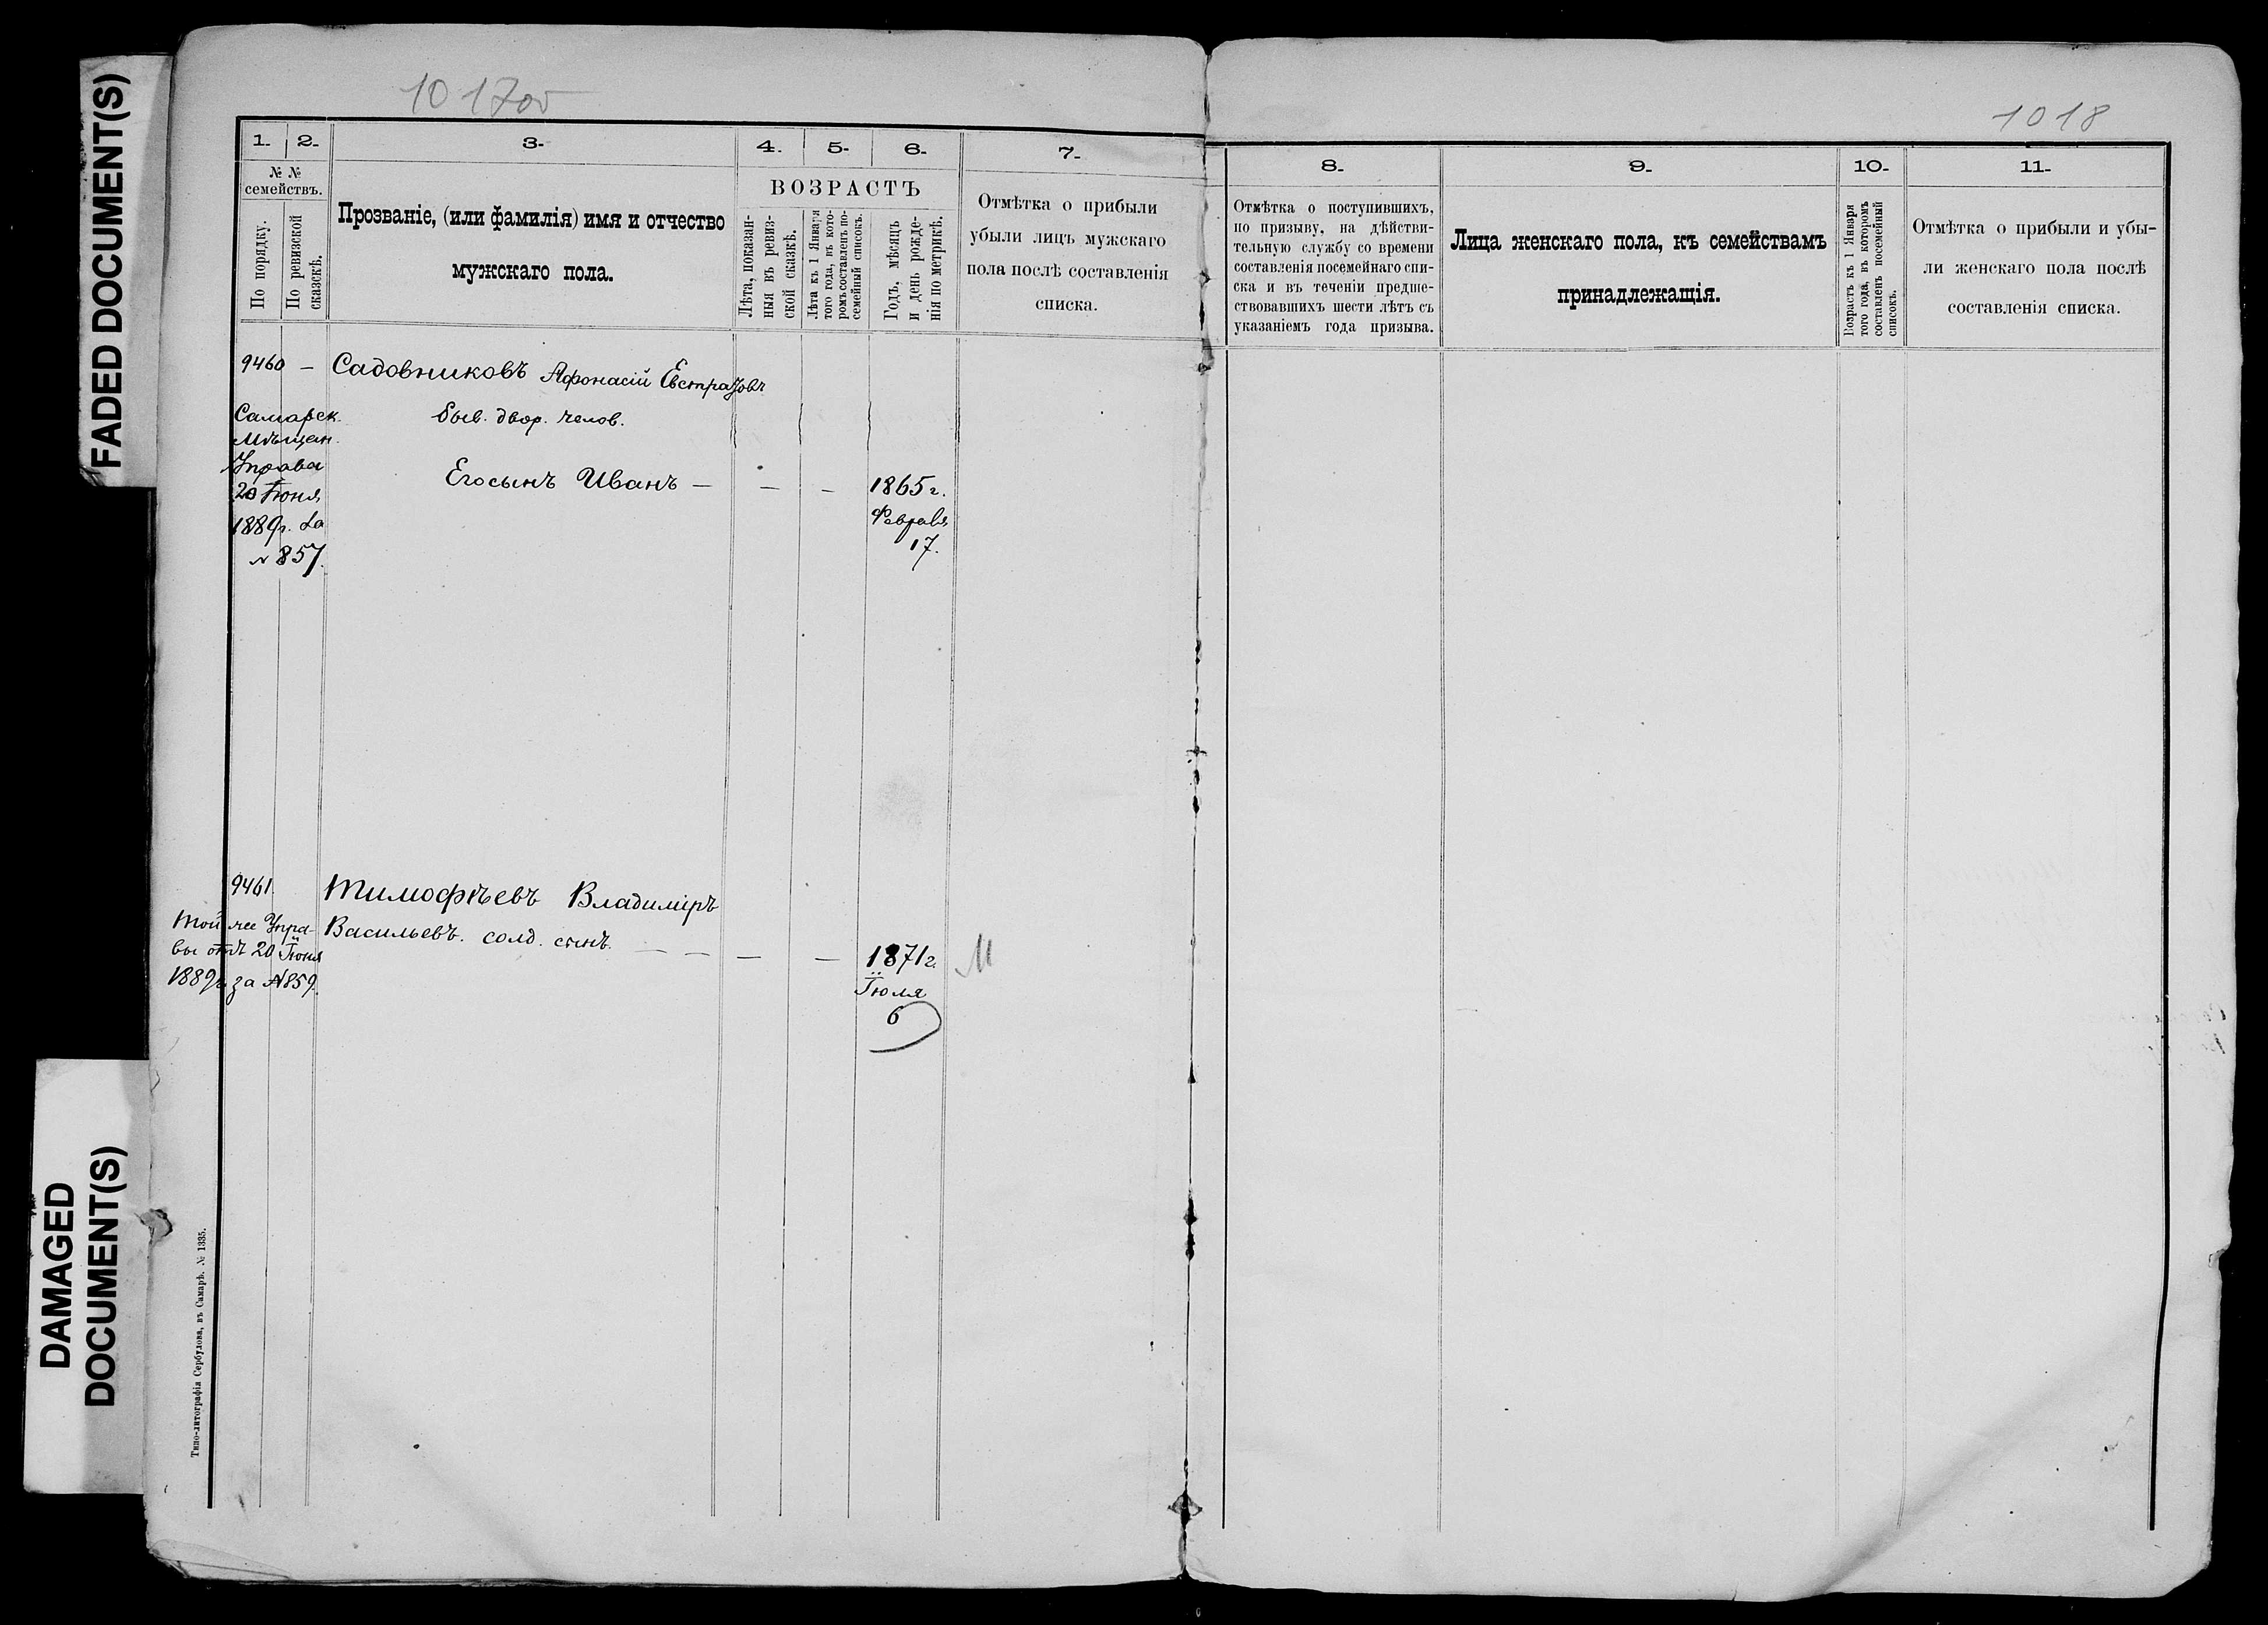 FADED DOCUMENT(S)
DAMAGED
DOCUMENT(S)
1017об
1018
1. 2. 3. 4. 5. 6. 7.
№ №
семействъ.
По порядку.
По ревизской
сказкѣ.
Прозваніе, (или фамилія) имя и отчество
мужскаго пола.
ВОЗРАСТЪ
Лѣта, показан-
ныя въ ревиз-
ской сказкѣ.
Лѣта къ 1 Января
того года, въ кото-
ромъ составленъ по-
семейный списокъ.
Годъ, мѣсяцъ
и день рожде-
нія по метрикѣ.
Отмѣтка о прибыли
убыли лицъ мужскаго
пола послѣ составленія
списка.
9460 — Садовниковъ Афонасій Евстратовъ
быв. двор. челов.
Самарск.
Мѣщан.
Управа
20 Іюня
1889г. За
№ 857.
Егосынъ Иванъ — — — 1865 г.
Февраля
17.
9461. Тимофѣевъ Владиміръ
Васильевъ. солд. сынъ. — — — — 1871 г.
Іюля
6
Той же Упра-
вы отъ 20 Іюня
1889г. за №859.
Типо-литографія Сербулова, въ Самарѣ. № 1335.
8. 9. 10. 11.
Отмѣтка о поступившихъ,
по призыву, на дѣйстви-
тельную службу со времени
составленія посемейнаго спи-
ска и въ теченіи предше-
ствовавшихъ шести лѣтъ съ
указаніемъ года призыва.
Лица женскаго пола, къ семействамъ
принадлежащія.
Возрастъ къ 1 Января
того года, въ которомъ
составленъ посемейный
списокъ.
Отмѣтка о прибыли и убы-
ли женскаго пола послѣ
составленія списка.